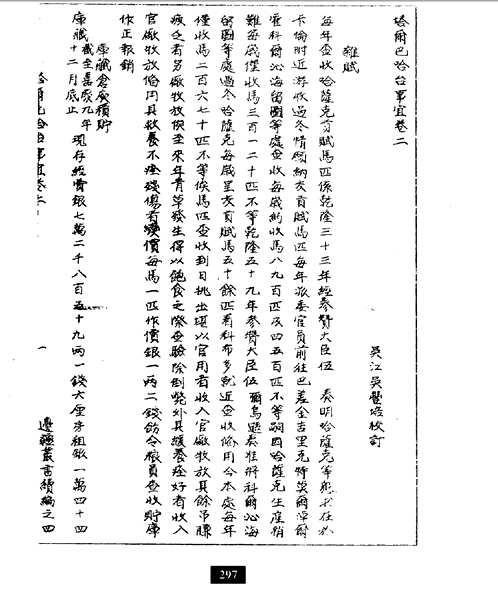 塔爾巴哈台事宜卷二
吳江吳豐培校訂
雜賦
每年查收哈薩克貢賦馬匹係乾隆三十三年經參贊大臣伍 奏明哈薩克等懇求在於
卡倫附近游牧過冬情願納交貢賦馬匹每年派委官員前往巴差金吉里克特莫爾淖爾
霍科爾沁海留圖等處查收每歲約收馬八九百匹及四五百匹不等嗣因哈薩克生產稍
難每歲僅收馬三百一二十匹不等乾隆五十九年參贊大臣伍 爾烏遜奏准將科爾沁海
留圖等處過冬哈薩克每歲呈交貢賦馬五十餘匹着科布多就近查收備用今本處每年
僅收馬二百六七十匹不等俟馬匹查收到日挑出堪以官用者收入官廠牧放其餘吊臕
疲乏者另廠牧放俟至來年青草發生得以飽食之際查驗除倒斃外其緩養痊好者收入
官廠牧放備用其餘養不痊殘傷者變價每馬一匹作價銀一兩二錢飭令糧員查收貯庫
作正報銷
庫藏倉廒積貯
庫藏 截至嘉慶九年十二月底止 現存經費銀七萬二千八百五十九兩一錢六厘房租銀一萬四十四
塔爾巴哈台事宜卷二
一
邊疆叢書續編之四
297